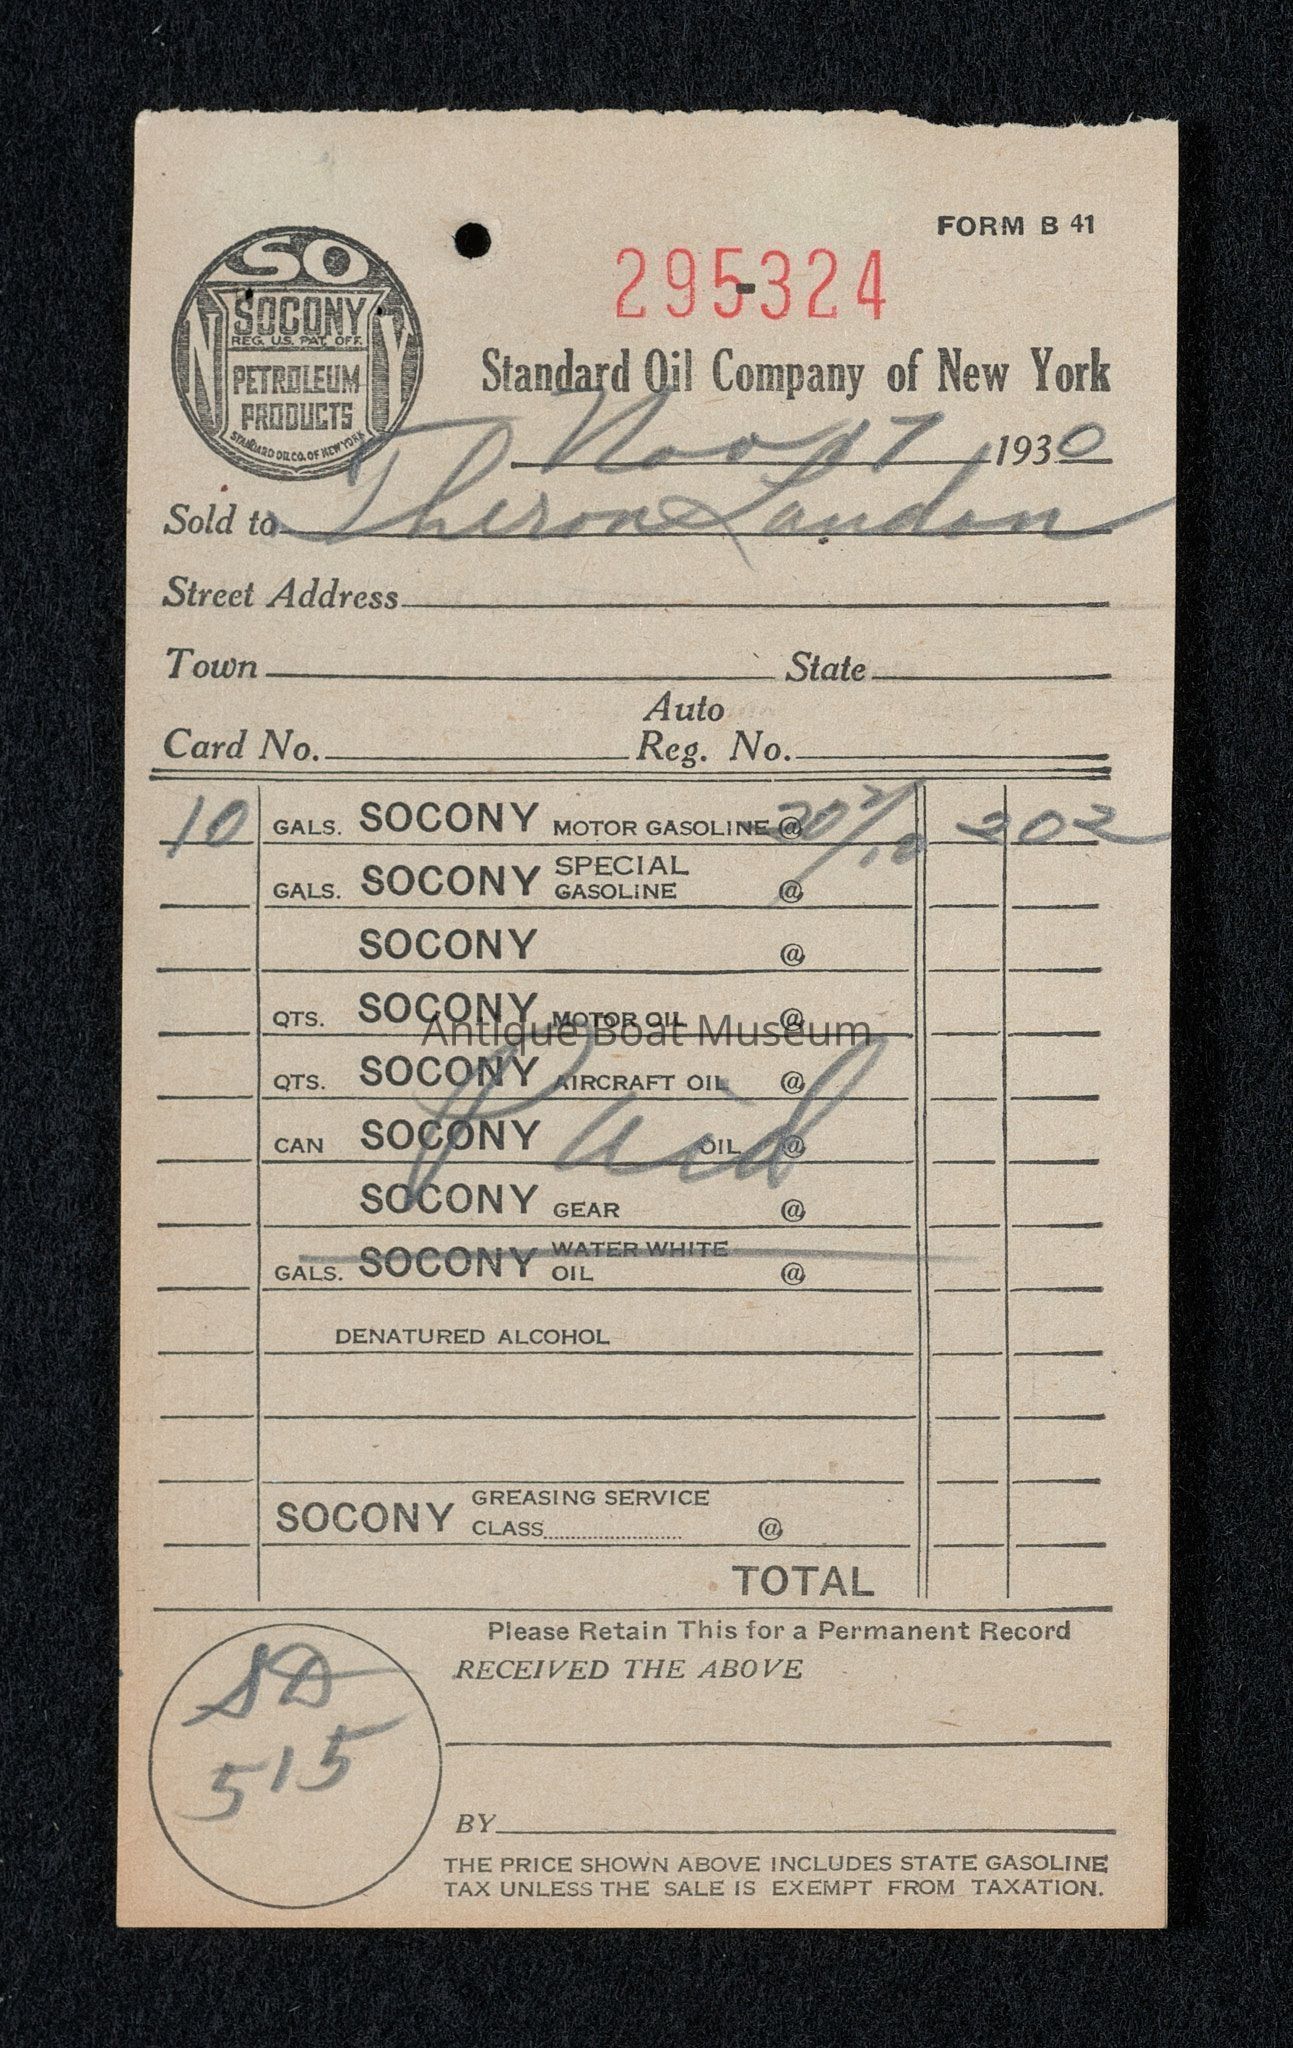 FORM B 41
SO
N Y
SOCONY
REG. U.S. PAT. OFF.
PETROLEUM
PRODUCTS
STANDARD OIL CO. OF NEW YORK
295324
Standard Oil Company of New York
Nov 17 1930
Sold to Theron Landon
Street Address
Town State
Auto
Card No. Reg. No.
10 GALS. SOCONY MOTOR GASOLINE @ 20 2/10 2 02
GALS. SOCONY SPECIAL GASOLINE @
SOCONY @
QTS. SOCONY MOTOR OIL @
Antique Boat Museum
QTS. SOCONY AIRCRAFT OIL @
Paid
CAN SOCONY OIL @
SOCONY GEAR @
GALS. SOCONY WATER WHITE OIL @
DENATURED ALCOHOL
SOCONY GREASING SERVICE
CLASS @
TOTAL
Please Retain This for a Permanent Record
RECEIVED THE ABOVE
SD
515
BY
THE PRICE SHOWN ABOVE INCLUDES STATE GASOLINE
TAX UNLESS THE SALE IS EXEMPT FROM TAXATION.